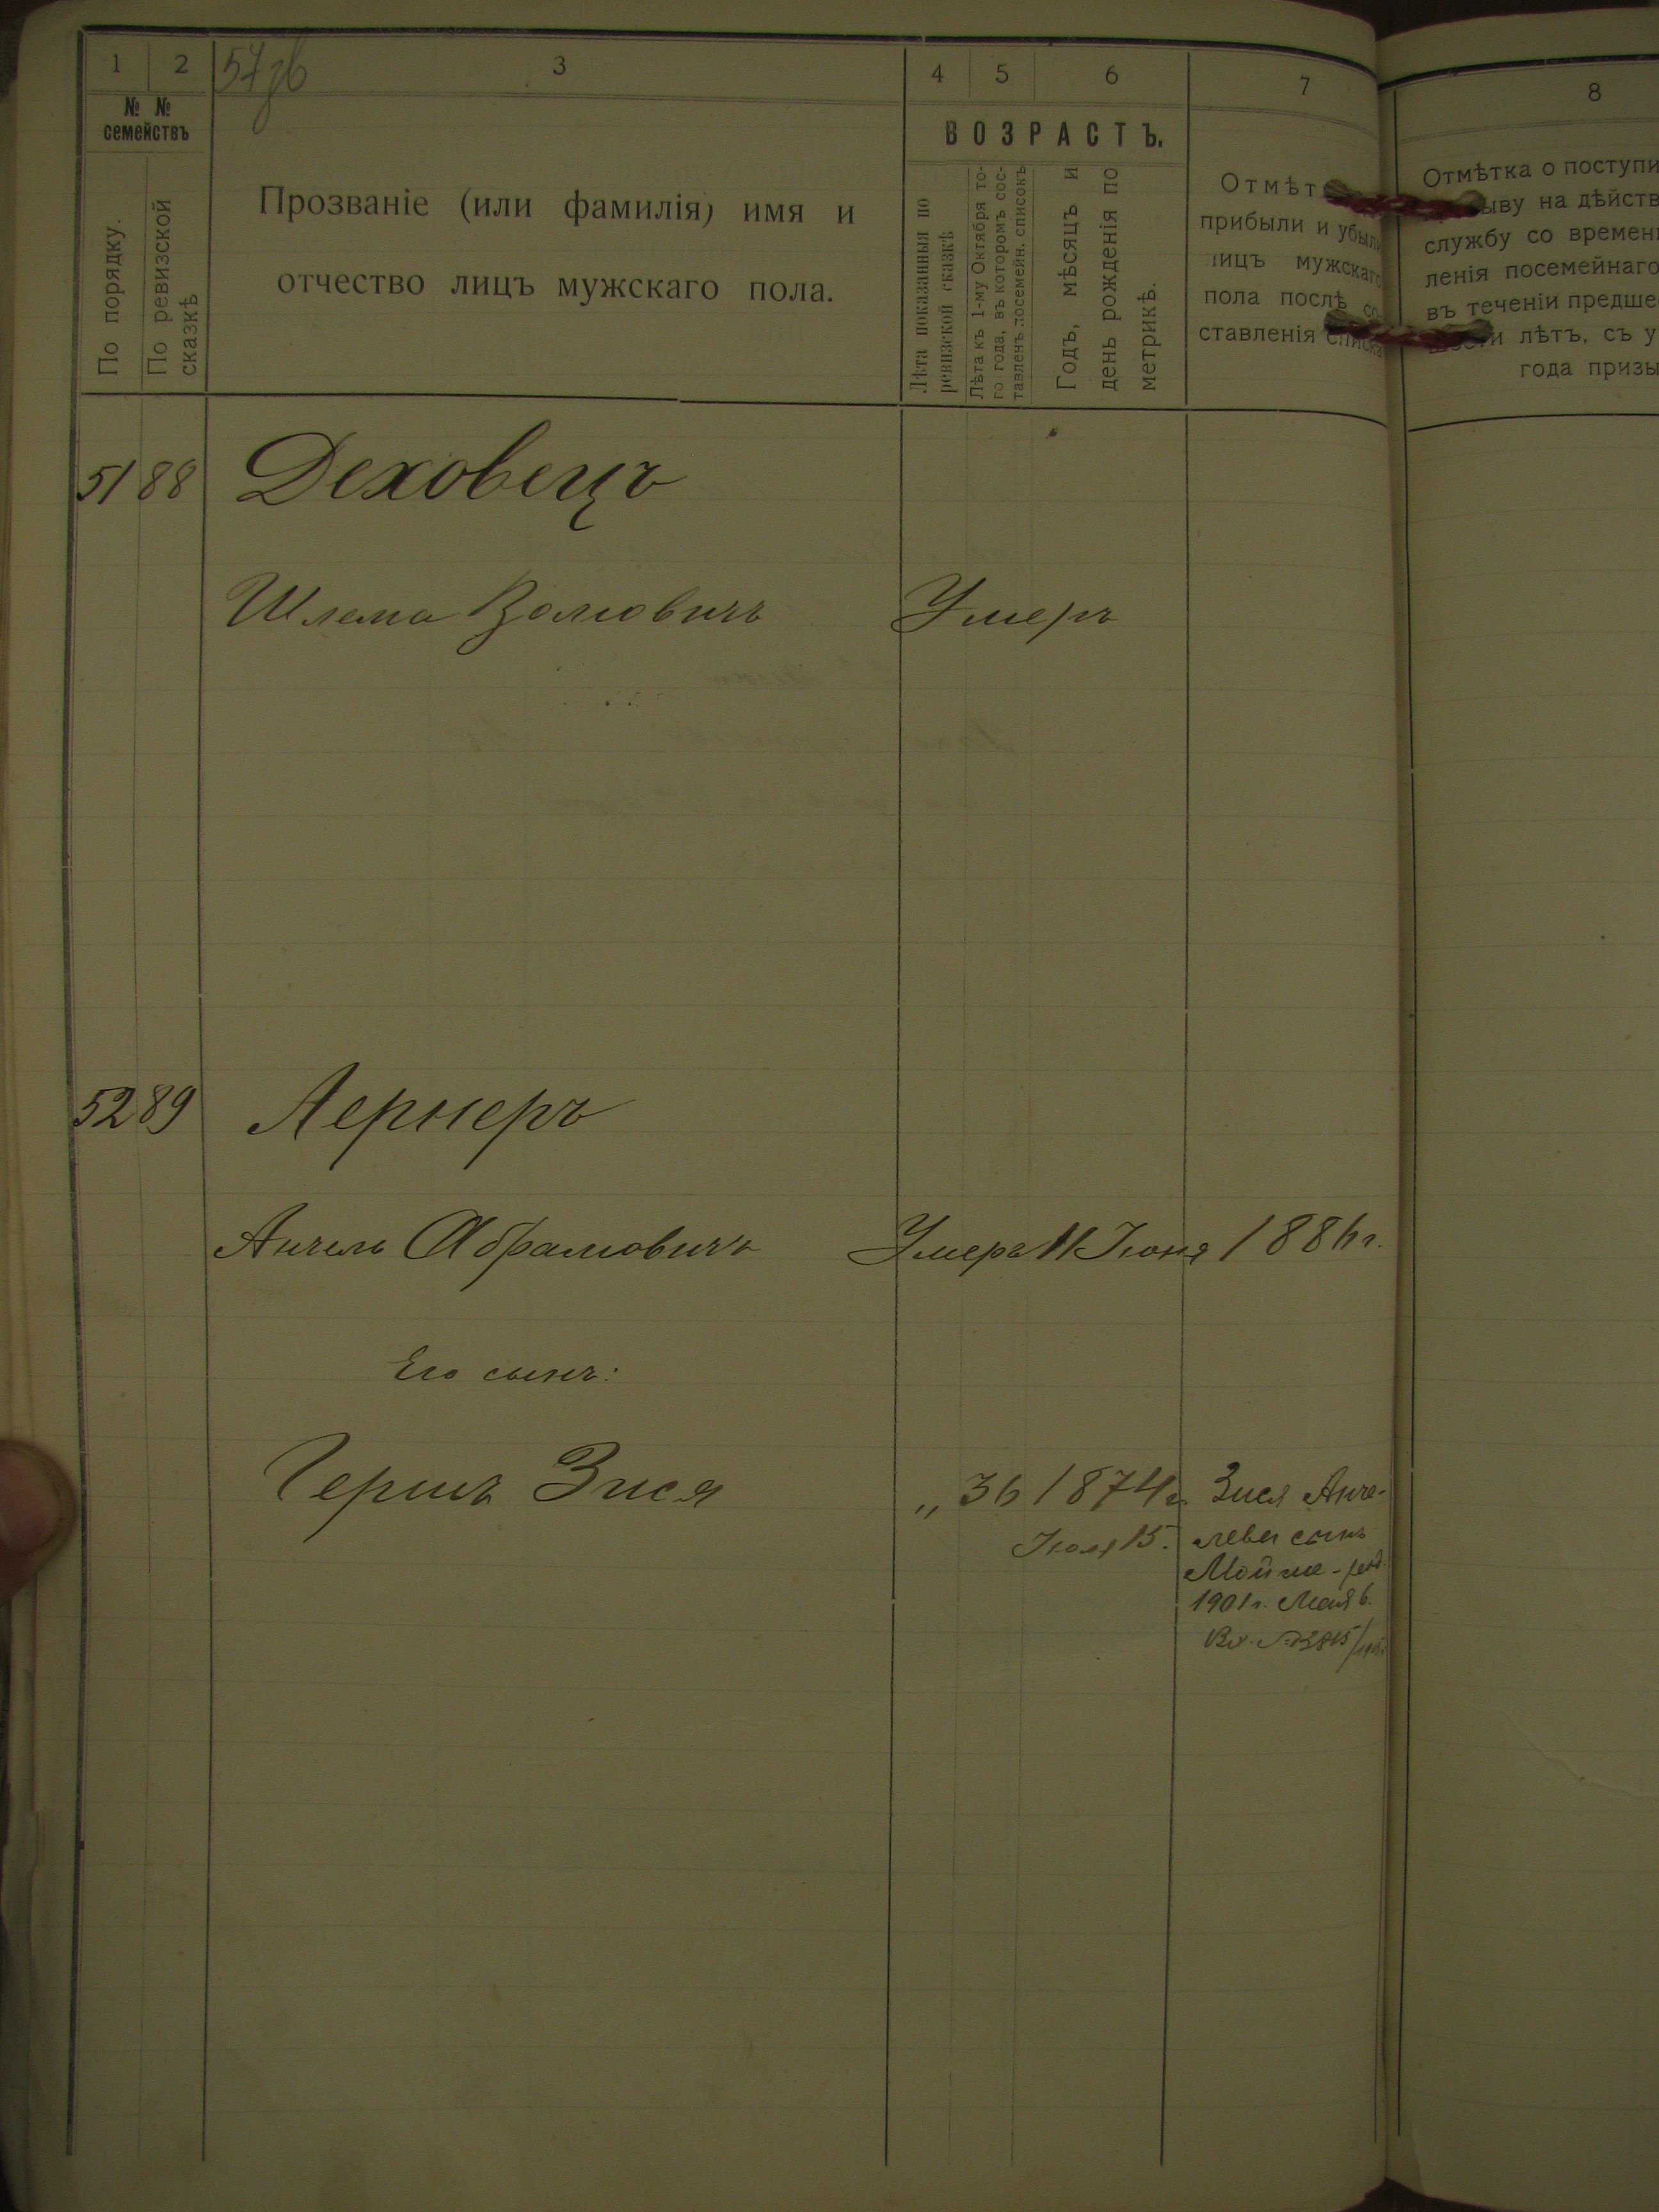 1 2 3 4 5 6 7 8
57 об
№ № семействъ
По порядку.
По ревизской сказкѣ
Прозваніе (или фамилія) имя и
отчество лицъ мужскаго пола.
ВОЗРАСТЪ.
Лѣта показанныя по
ревизской сказкѣ
Лѣта къ 1-му Октября то-
го года, въ которомъ сос-
тавленъ посемейн. списокъ
Годъ, мѣсяцъ и
день рожденія по
метрикѣ.
Отмѣт
прибыли и убыли
лицъ мужскаго
пола послѣ со
ставленія списка
Отмѣтка о поступи
ыву на дѣйств
службу со времени
ленія посемейнаго
въ теченіи предше
шести лѣтъ, съ у
года призы
51 88 Деховецъ
Шлема Волковичъ Умеръ
52 89 Лернеръ
Анчель Абрамовичъ Умеръ 11 Іюня 1886 г.
Его сынъ:
Гершъ Зися „ 36 1874 г. Зися Анче-
Іюля 15. левъ сынъ
Мойше - род.
1901 г. Мая 6.
Вх. №